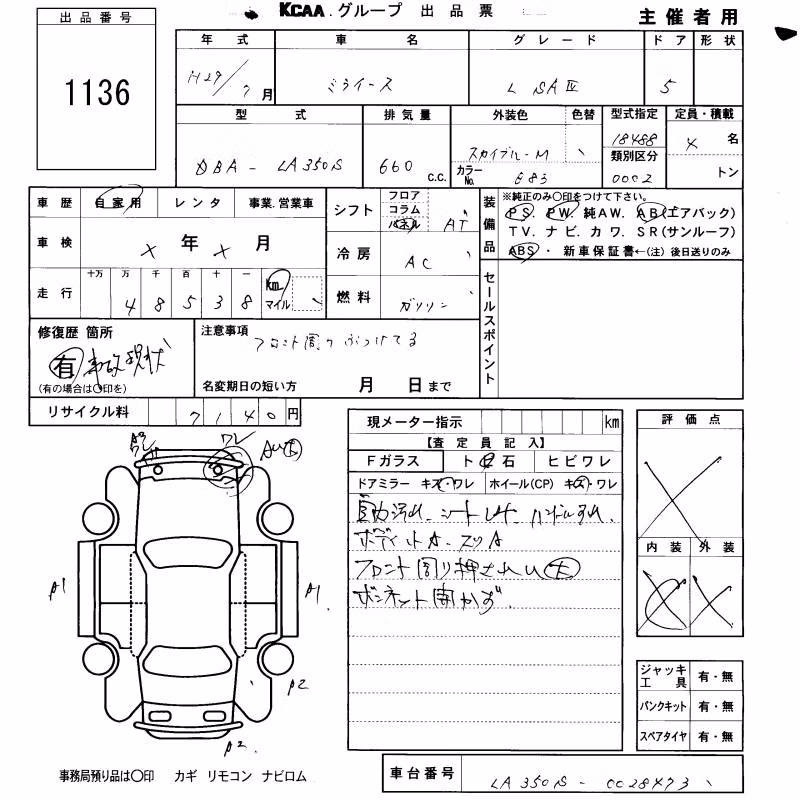 KCAA.グループ 出品票
主催者用
出品番号
1136
年式 車名 グレード ドア 形状
H29/7月 ミライース L SAⅢ 5
型式 排気量 外装色 色替 型式指定 定員・積載
DBA-LA350S 660 c.c. スカイブルーM 18488 4 名
カラーNo. B83 類別区分 0002 トン
車歴 自家用 レンタ 事業.営業車
シフト フロア コラム パネル AT
車検 × 年 × 月
冷房 AC
走行 十万 万 千 百 十 一 Km. マイル
48538
燃料 ガソリン
装備品 ※純正のみ○印をつけて下さい。
PS. PW. 純AW. AB(エアバック)
TV. ナビ. カワ. SR(サンルーフ)
ABS・ 新車保証書←(注)後日送りのみ
セールスポイント
修復歴 箇所
有 事故現状
(有の場合は○印を)
注意事項
フロント周りぶつけてる
名変期日の短い方 月 日まで
リサイクル料 7140円
現メーター指示 km
【査定員記入】
Fガラス ト 石 ヒビワレ
ドアミラー キズ・ワレ ホイール(CP) キズ・ワレ
ボディ
フロント周り押され 大
ボンネット開かず.
評価点
×
内装 外装
× ×
ワレ
ワレ
A1
A1.
A2
A2.
ジャッキ工具 有・無
パンクキット 有・無
スペアタイヤ 有・無
事務局預り品は○印 カギ リモコン ナビロム
車台番号 LA350S-0028473